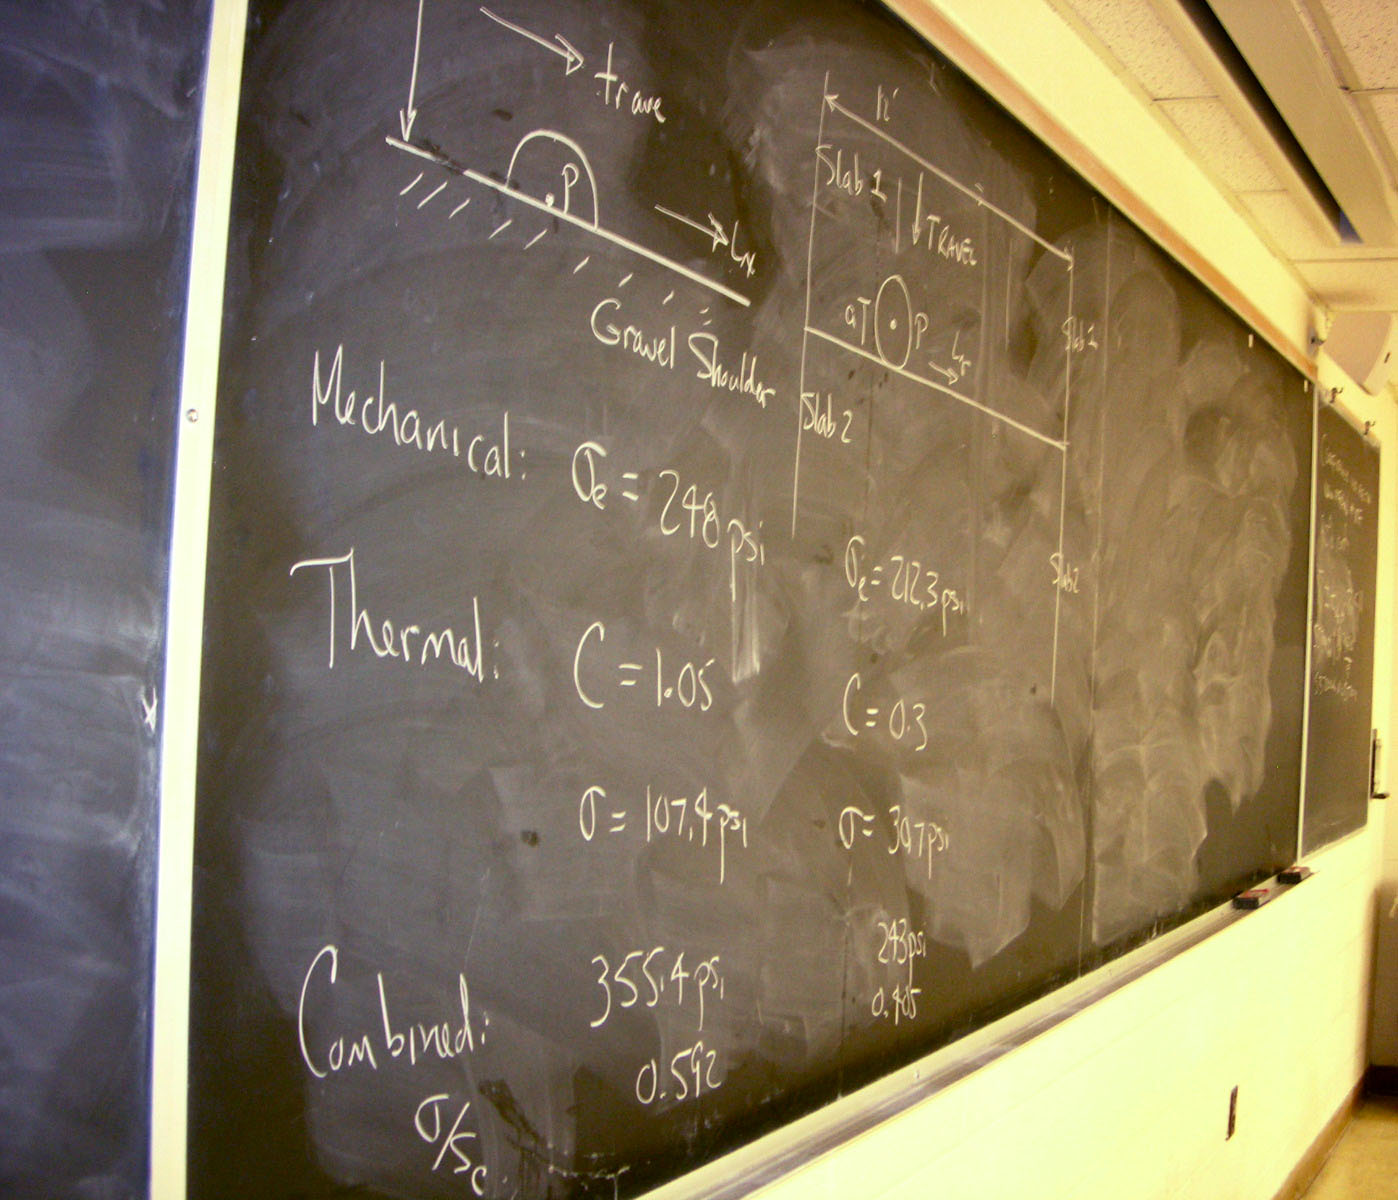 trave
P
Lx
Gravel Shoulder
12'
Slab 1
TRAVEL
aT
P
Slab 1
Slab 2
Slab 2
Mechanical: σe = 248 psi
σe = 212.3 psi
Thermal: C = 1.05
C = 0.3
σ = 107.4 psi
σ = 30.7 psi
Combined: 355.4 psi
243 psi
σ/Sc 0.592
0.405